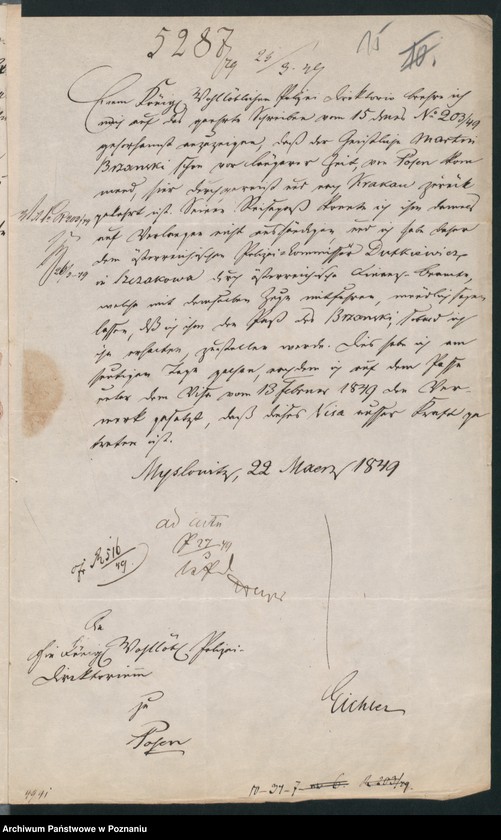 5287/49 26/3. 49
15
Einem Königl. Wohllöblichen Polizei Direktorio beehre ich
mich auf das geehrte Schreiben vom 15. dmts No 203/49
gehorsamst anzuzeigen, daß der Geistliche Martin
Brzanski schon vor längerer Zeit von Posen kom
mend, hier durchgereist und nach Krakau zurück
gekehrt ist. Seinen Reisepaß konnte ich ihm damals
auf Verlangen nicht aushändigen und ich habe daher
dem österreichischen Polizei Kommissär Dutkiewicz
in Szczakowa durch österreichische Beamte,
welche mit demselben Zuge mitfuhren, mündlich sagen
lassen, daß ich ihm den Paß des Brzanski, sobald ich
ihn erhalten, zustellen werde. Dies habe ich am
heutigen Tage gethan, nachdem ich auf dem Passe
unter dem Visa vom 13 Februar 1849 den Ver-
merk gesetzt, daß dieses Visa ausser Kraft ge
treten ist.
Myslowitz, 22 Maerz 1849
ad acta
P 27/3 49
R 516/49
An
Ein Königl. Wohllöbl Polizei-
Direktorium
zu
Posen
Eichler
4991
203/49.
Archiwum Państwowe w Poznaniu